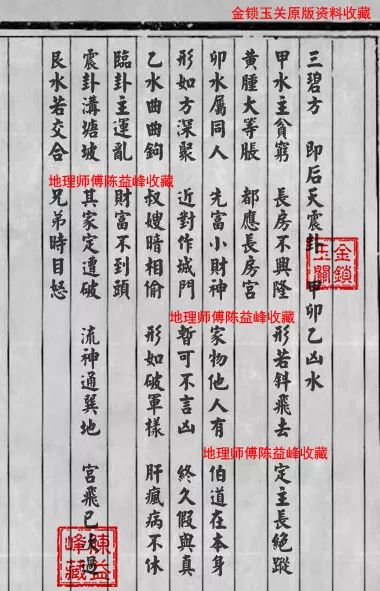 金锁玉关原版资料收藏
三碧方 即后天震卦 甲卯乙凶水
甲水主貧窮 長房不興隆 形若斜飛去 定主長絕蹤
黃腫大等脹 都應長房宮
卯水屬同人 先富小財神 家物他人有 伯道在本身
形如方深聚 近對作城門 暫可不言凶 終久假與真
乙水曲曲鉤 叔嫂暗相偷 形如破軍樣 肝瘋病不休
臨卦主運亂 財富不到頭
震卦溝塘坡 其家定遭破 流神通巽地 宮飛已過
艮水若交合 兄弟時目怒
地理师傅陈益峰收藏
地理师傅陈益峰收藏
地理师傅陈益峰收藏
金鎖玉關
陳益峰藏